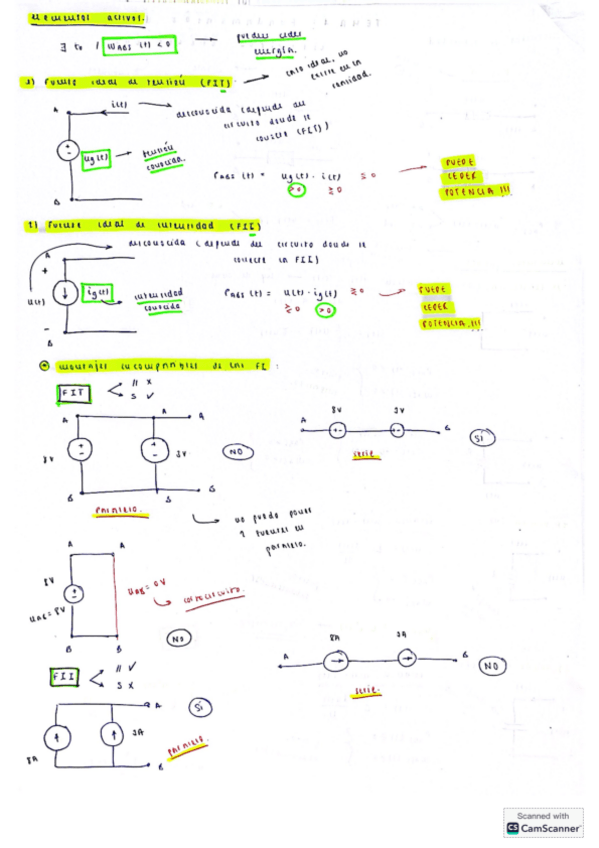 Elementos activos.
∃ t0 / Wabs (t) < 0 → pueden ceder
energía.
1) Fuente ideal de tensión (FIT). → caso ideal, no
existe en la
realidad.
A i(t) → desconocida (depende del
circuito donde se
conecte (FIT))
+ - ug(t) → tensión
conocida.
Pabs (t) = ug(t) · i(t) ≷ 0 → PUEDE
>0 ≷0 CEDER
POTENCIA !!!
B
2) Fuente ideal de intensidad (FII)
desconocida (depende del circuito donde se
conecte la FII)
A
+
u(t) ig(t) → intensidad
conocida
Pabs (t) = u(t) · ig(t) ≷ 0 → PUEDE
≷0 >0 CEDER
POTENCIA !!!
-
B
montajes incompatibles de las FI :
FIT < // X
S ✓
A A A
8V + - + - 3V NO
B B B
paralelo.
→ no puedo poner
2 fuentes en
paralelo.
8V 3V
A + - + - B SÍ
serie
A A
8V
+ -
UAB = 8V
UAB = 0V
→ cortocircuito.
B B
NO
FII < // ✓
S X
A
SÍ
8A 3A
paralelo.
B
8A 3A
A B NO
serie.
Scanned with
CS CamScanner